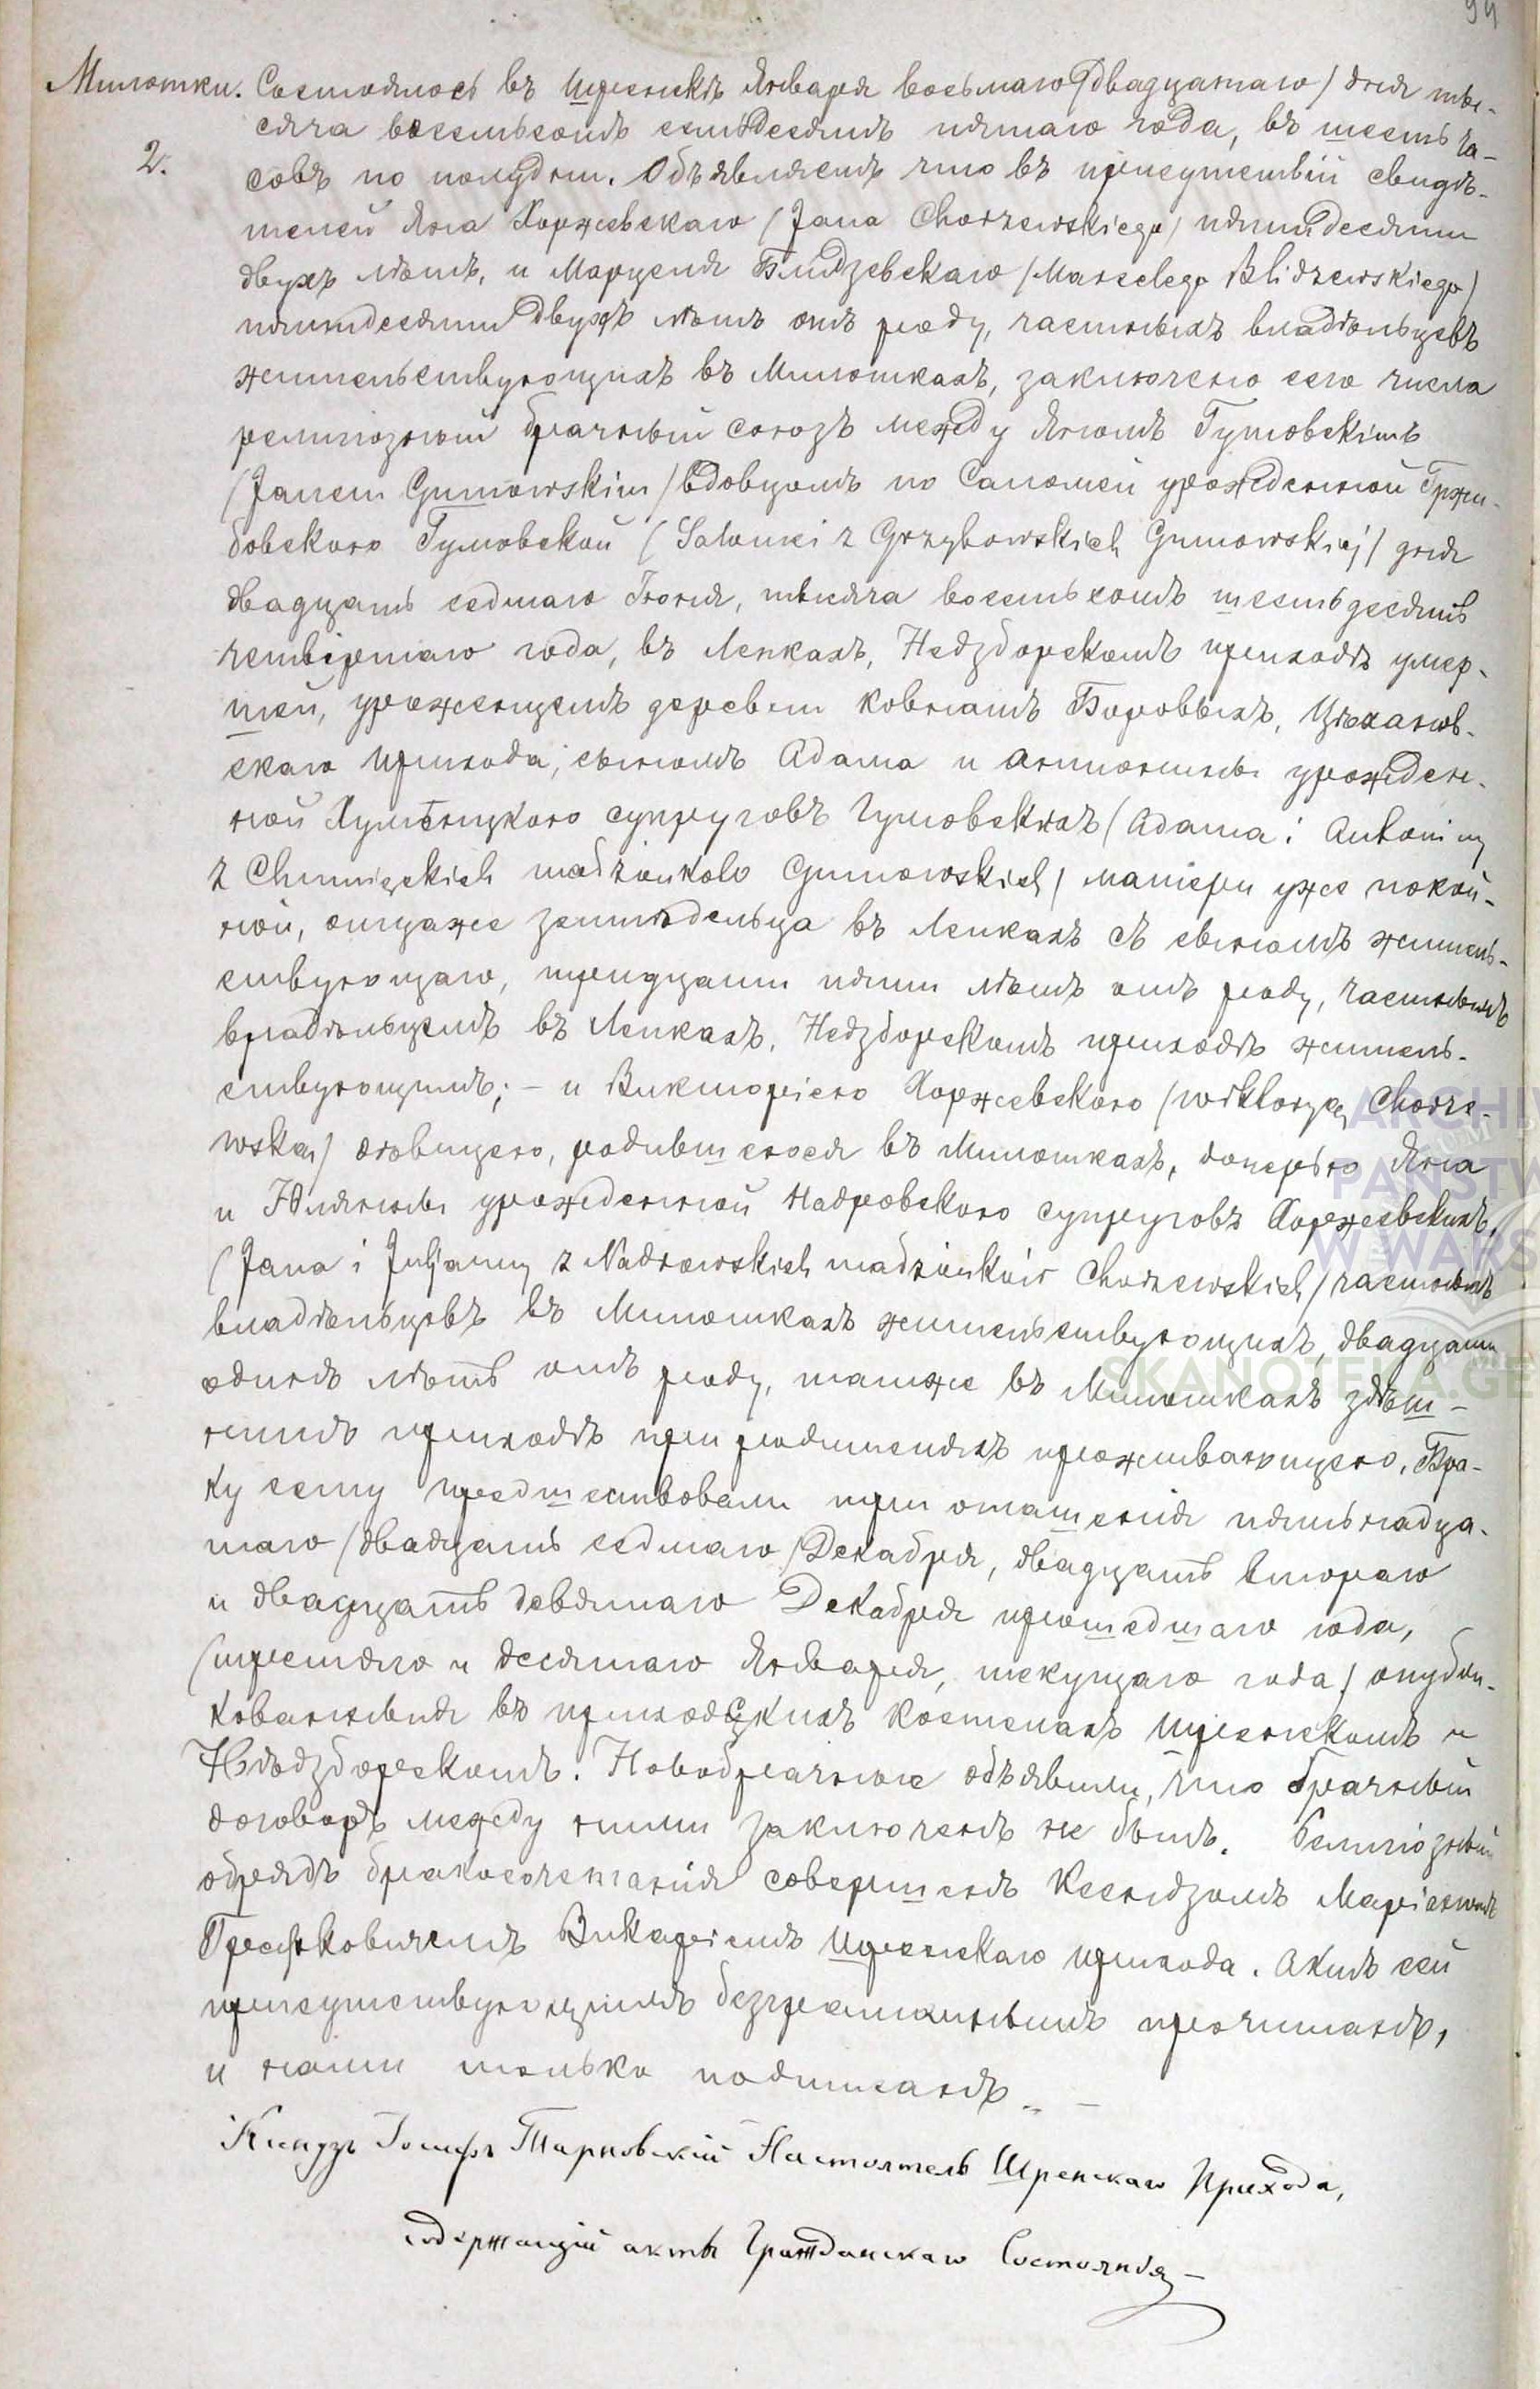 94
Милотки. Состоялось въ Шренскѣ Января восьмаго /двадцатаго/ дня ты-
2. сяча восемьсотъ семьдесятъ пятаго года, въ шесть ча-
совъ по полудни. Объявляемъ что въ присутствіи свидѣ-
телей Яна Хоржевскаго /Jana Chorzewskiego/ пятидесяти
двухъ лѣтъ, и Марцеля Блидзевскаго /Marcelego Blidzewskiego/
пятидесяти двухъ лѣтъ отъ роду, частныхъ владѣльцевъ
жительствующихъ въ Милоткахъ, заключено сего числа
религіозный брачный союзъ между Яномъ Гумовскимъ
/Janem Gumowskim/ вдовцомъ по Саломеи урожденной Гржи-
бовскою Гумовской /Salomei z Grzybowskich Gumowskiej/ дня
двадцать седмаго Іюня, тысяча восемьсотъ шестьдесятъ
четвертаго года, въ Ленкахъ, Недзборскомъ приходѣ умер-
шей, уроженцемъ деревни Ковнатъ Боровыхъ, Цѣханов-
скаго прихода, сыномъ Адама и Антонины урожден-
ной Хумѣнцкою супруговъ Гумовскихъ /Adama i Antoniny
z Chumięckich małżonków Gumowskich/ матери уже покой-
ной, отцаже земледельца въ Ленкахъ съ сыномъ житель-
ствующаго, тридцати пяти лѣтъ отъ роду, частнымъ
владѣльцемъ въ Ленкахъ, Недзборскомъ приходѣ житель-
ствующимъ; – и Викторіею Хоржевскою /Wiktoryą Chorze-
wską/ дѣвицею, родившеюся въ Милоткахъ, дочерью Яна
и Юлянны урожденной Надровскою супруговъ Хоржевскихъ,
/Jana i Juljanny z Nadrowskich małżonków Chorzewskich/ частныхъ
владѣльцовъ въ Милоткахъ жительствующихъ, двадцати
одинъ лѣтъ отъ роду, также въ Милоткахъ здѣш-
нимъ приходѣ при родителяхъ проживающею. Бра-
ку сему предшествовали три оглашенія пятьнадца-
таго /двадцать седмаго/ Декабря, двадцать втораго
и двадцать девятаго Декабря прошедшаго года,
/третяго и десятаго Января, текущаго года/ опубли-
кованныя въ приходскихъ костелахъ Шренскомъ и
Нѣдзборскомъ. Новобрачные объявили, что брачный
договоръ между ними заключенъ не былъ. Религіозный
обрядъ бракосочетанія совершенъ Ксендзомъ Маріаномъ
Викаріемъ Шренскаго прихода. Актъ сей
присутствующимъ безграмотнымъ прочитанъ,
и нами только подписанъ. –
Ксендзъ Іосифъ Тарновскій Настоятель Шренскаго Прихода,
содержащій акты Гражданскаго Состоянія –
ARCHIW
PAŃSTW
W WARS
SKANOTEKA.GE